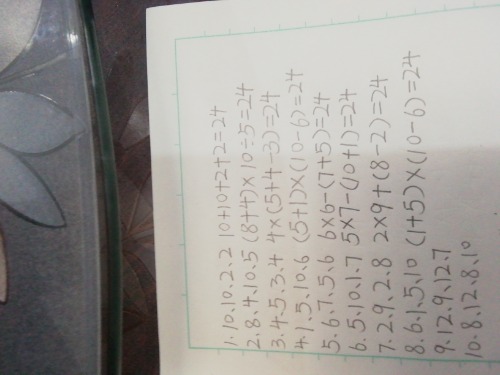 1.10、10、2、2 10+10+2+2=24
2.8、4、10、5 (8+4)×10÷5=24
3.4、5、3、4 4×(5+4-3)=24
4.1、5、10、6 (5+1)×(10-6)=24
5.6、7、5、6 6×6-(7+5)=24
6.5、10、1、7 5×7-(10+1)=24
7.2、9、2、8 2×9+(8-2)=24
8.6、1、5、10 (1+5)×(10-6)=24
9.12、9、12、7
10.8、12、8、10